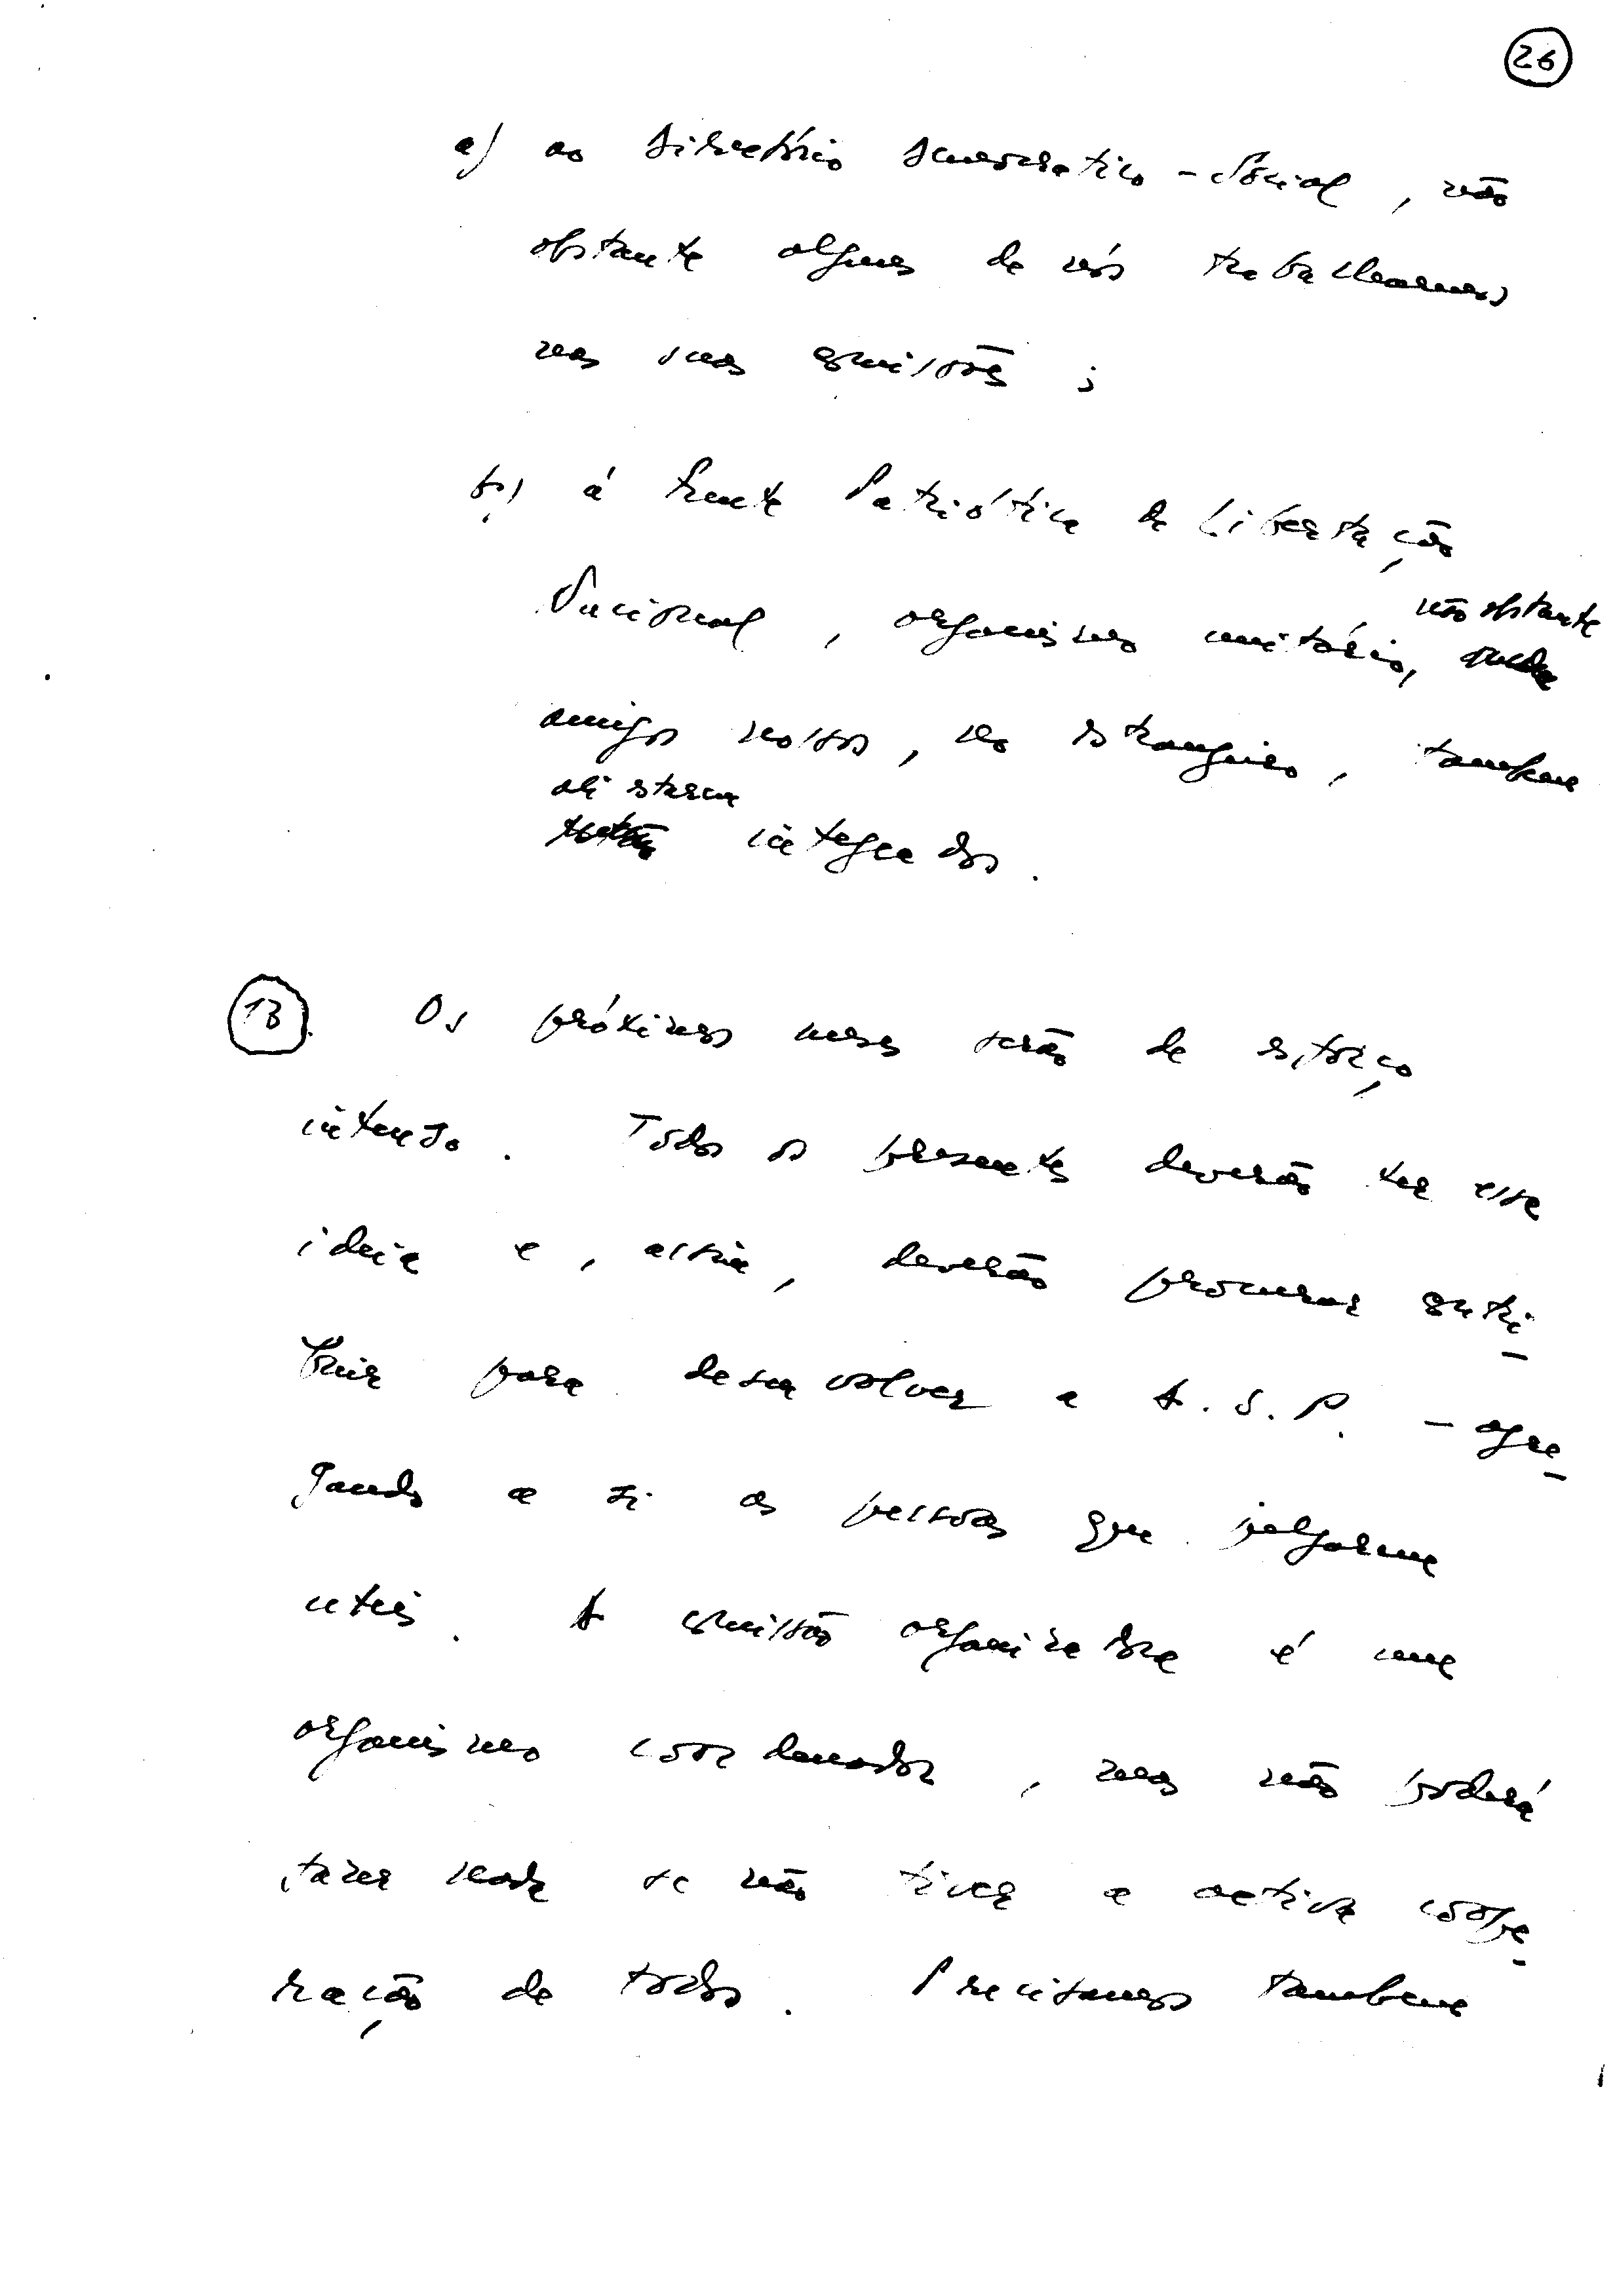 26
a) ao Directório Democrático-Social, não
obstante alguns de nós trabalharmos
nas suas comissões;
b) à Frente Patriótica de Libertação
não obstante
Nacional, organismo unitário,
amigos nossos, no estrangeiro, também
ali estarem
integrados.
13. Os próximos meses serão de esforço
intenso. Todos os presentes deverão ter essa
ideia e, assim, deverão procurar contri-
buir para desenvolver a A.S.P. - agre-
gando a si as pessoas que julgarem
uteis. A comissão organizadora é um
organismo coordenador, mas não poderá
fazer nada se não tiver a activa coope-
ração de todos. Precisamos também